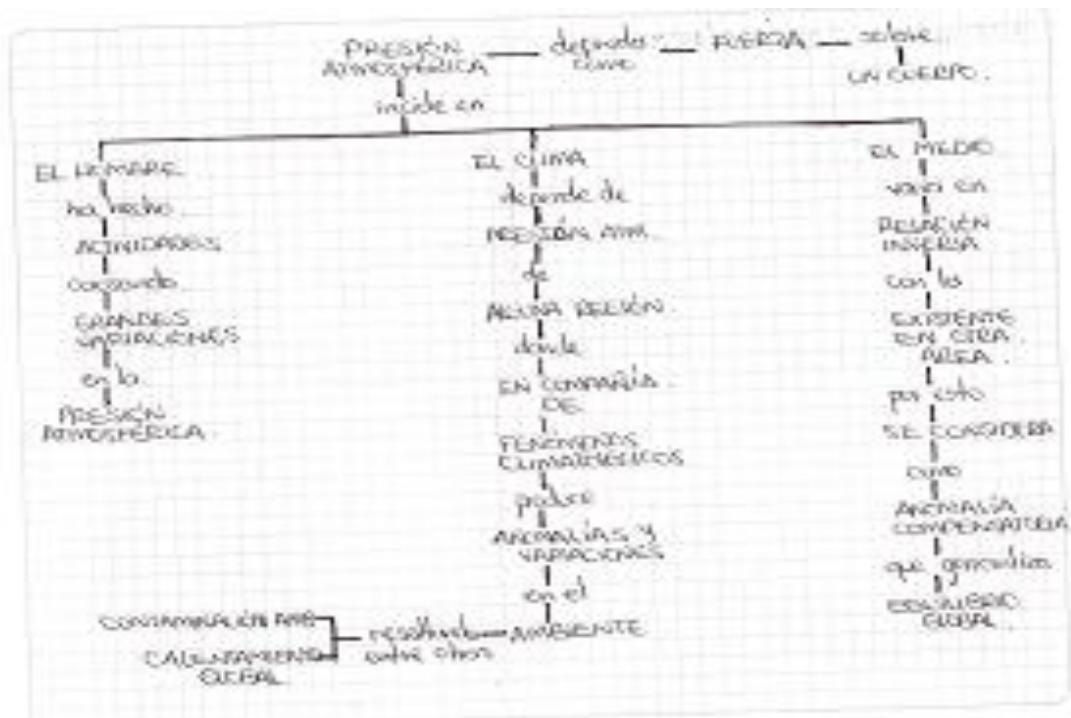 PRESIÓN
ATMOSFÉRICA
definida
como
FUERZA
sobre
UN CUERPO.
incide en
EL HOMBRE
ha hecho
ACTIVIDADES
causando
GRANDES
VARIACIONES
en la
PRESIÓN
ATMOSFÉRICA.
EL CLIMA
depende de
PRESIÓN ATM.
de
ALGUNA REGIÓN.
donde
EN COMPAÑÍA
DE
FENÓMENOS
CLIMATOLÓGICOS
produce
ANOMALÍAS Y
VARIACIONES
en el
AMBIENTE
entre otros
CONTAMINACIÓN AMB
CALENTAMIENTO
GLOBAL.
EL MEDIO
en
RELACIÓN
INVERSA
con la
EXISTENTE
EN OTRA
ÁREA.
por esto
SE CONSIDERA
como
ANOMALÍA
COMPENSATORIA
que garantiza
EQUILIBRIO
GLOBAL.